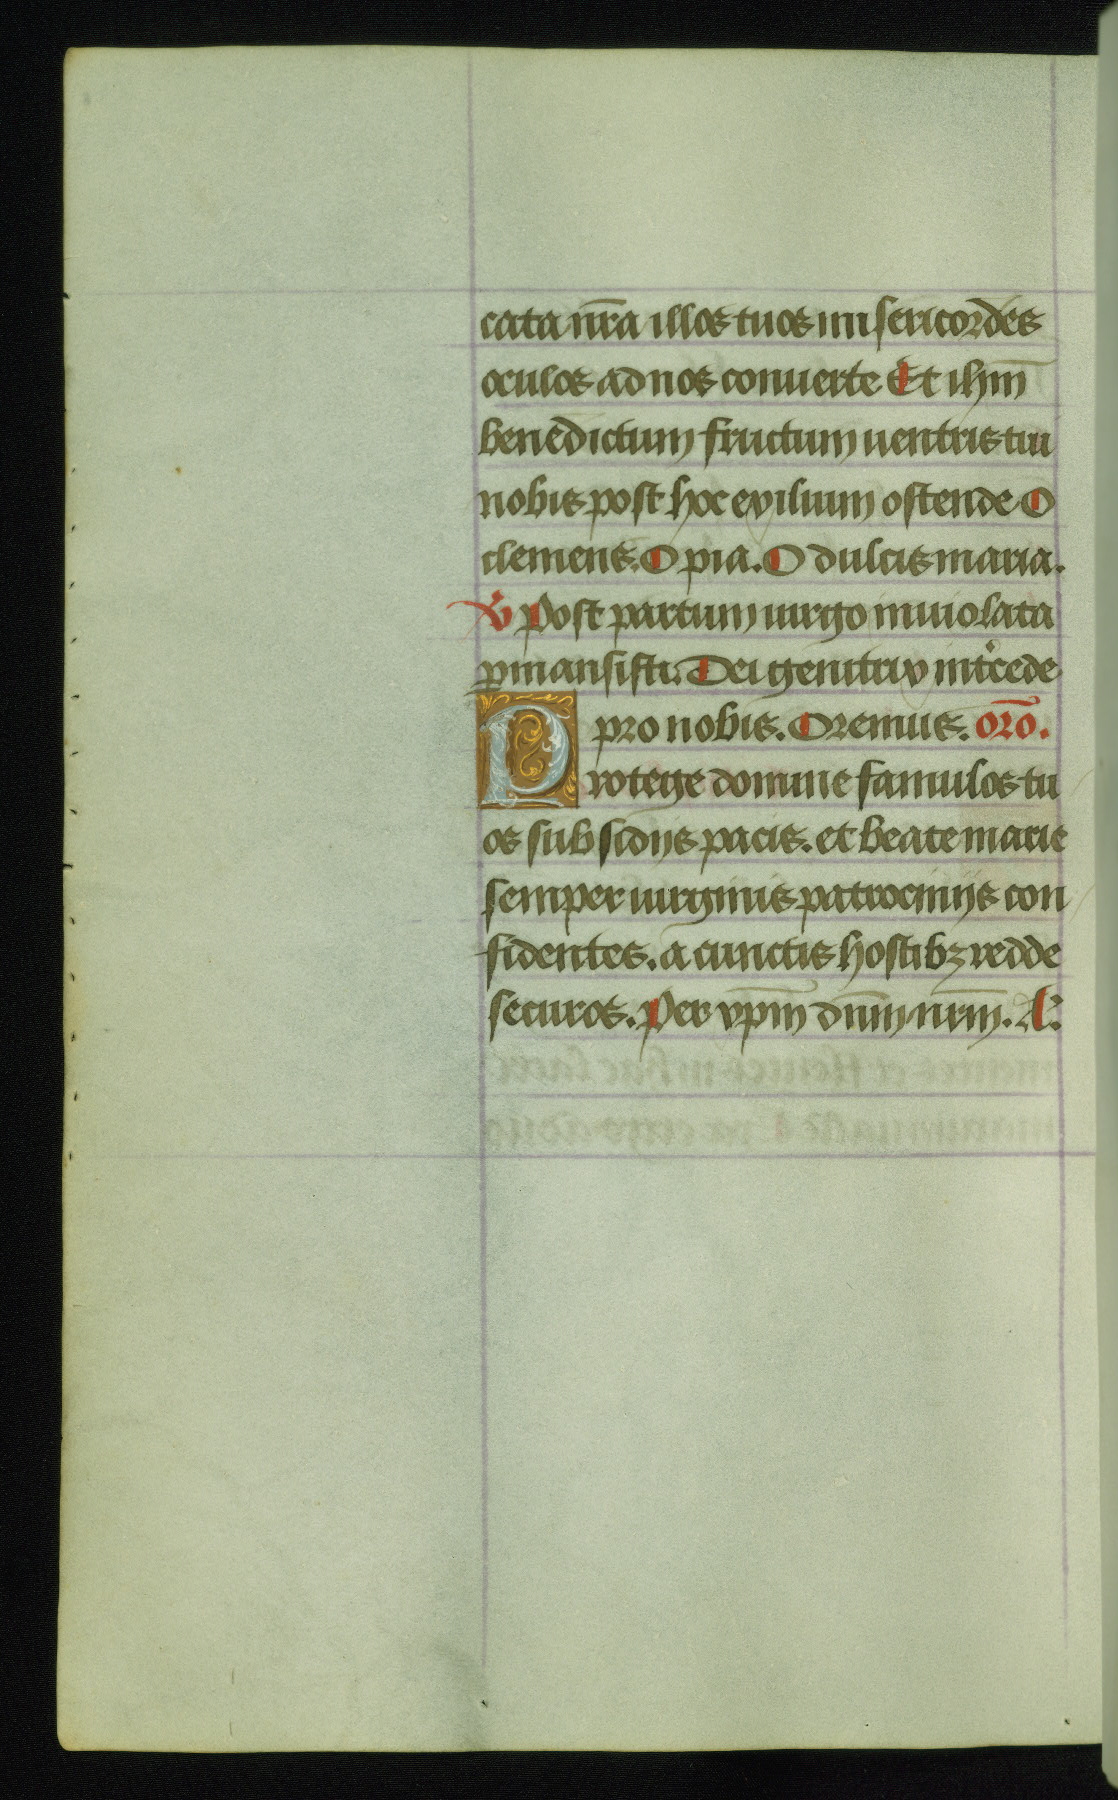 cata nr̄a illos tuos misericordes
oculos ad nos conuerte Et ihm̄
benedictum fructum uentris tui
nobis post hoc exilium ostende O
clemens. O pia. O dulcis maria.
℣ Post partum uirgo inuiolata
ꝑmansisti. Dei genitrix int̉cede
pro nobis. Oremus. or̄o.
Protege domine famulos tu
os subsidijs pacis. et beate marie
semper uirginis patrocinijs con
fidentes. a cunctis hostibꝫ redde
securos. Per xp̄m dn̄m nr̄m. A.